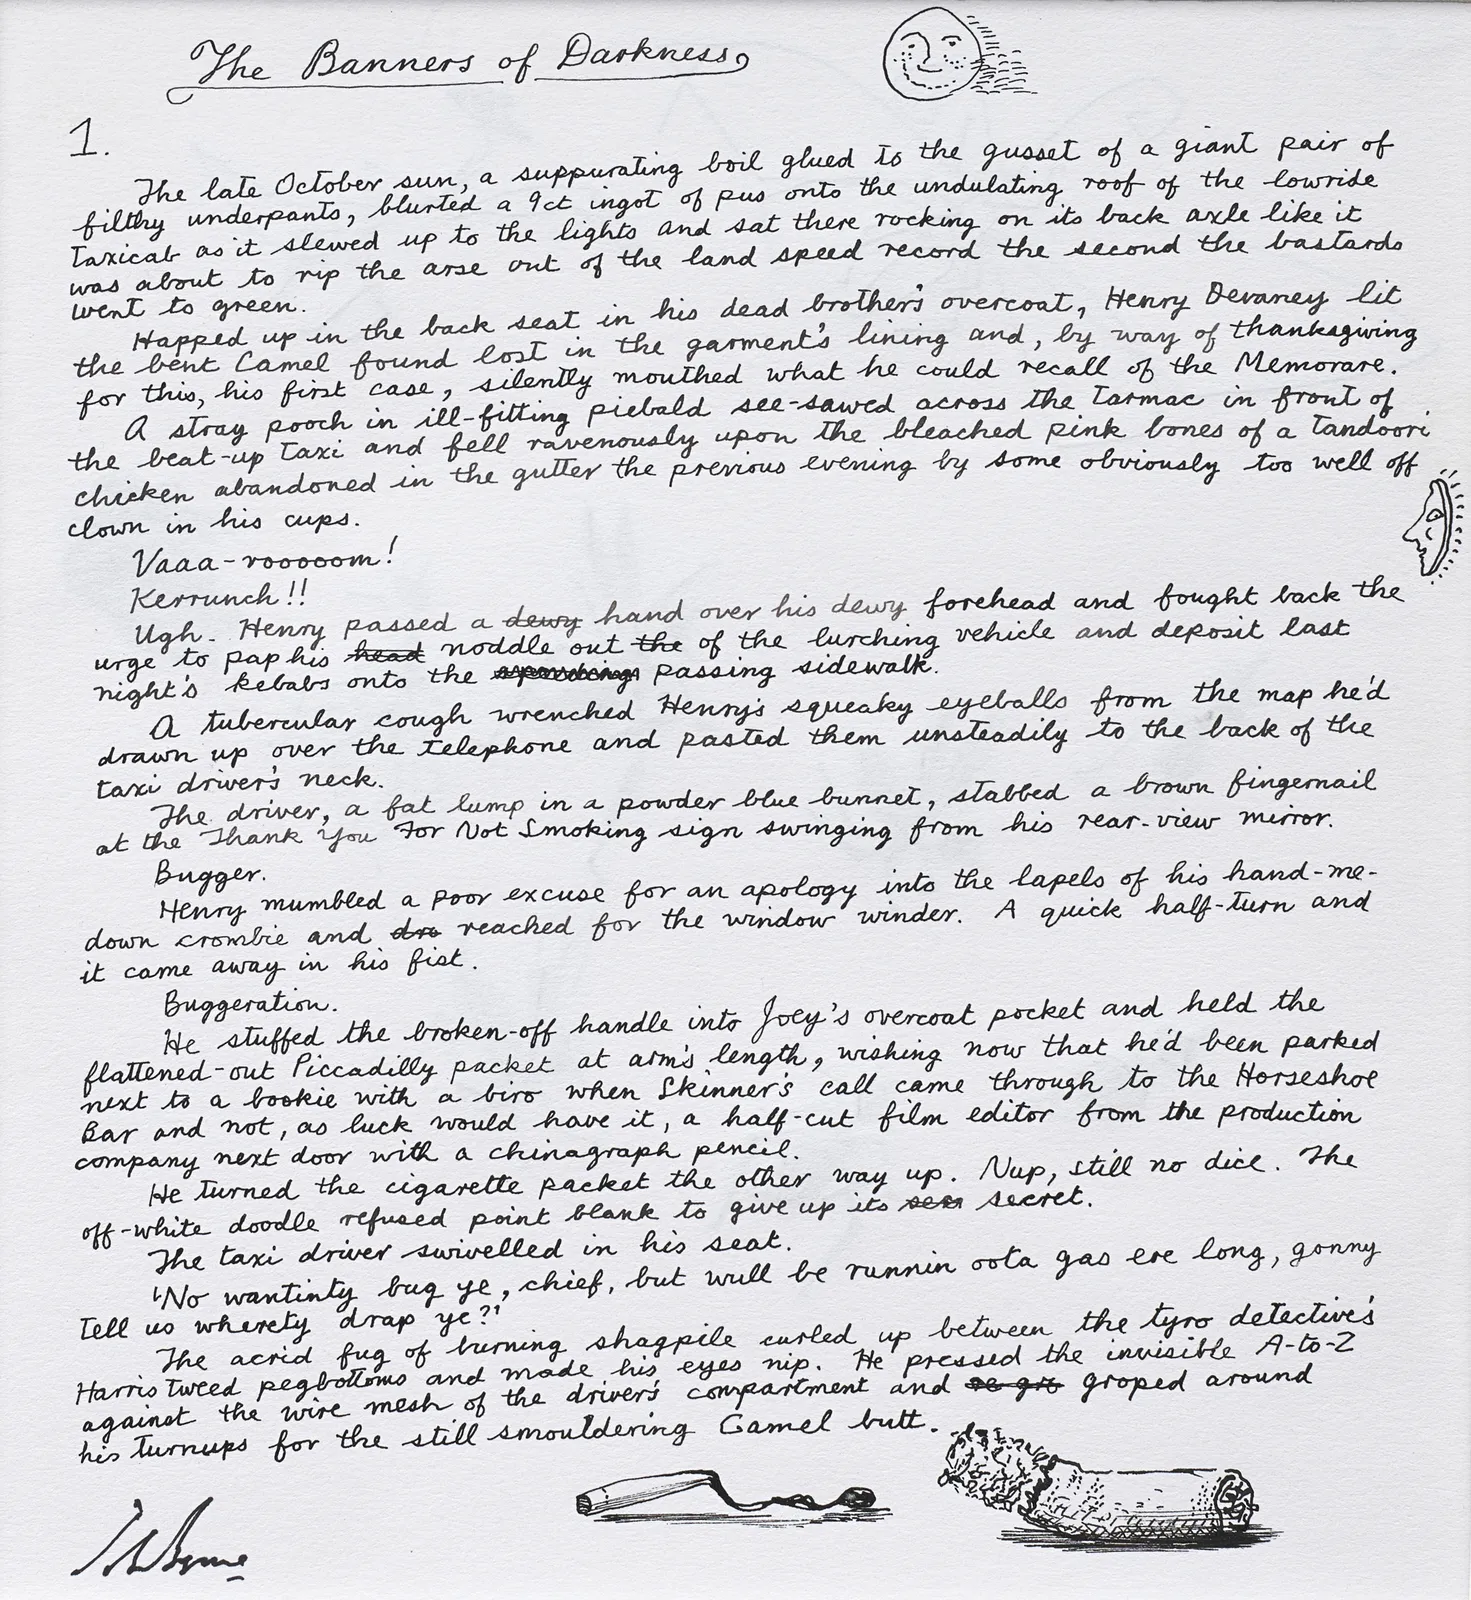 The Banners of Darkness
1.
The late October sun, a suppurating boil glued to the gusset of a giant pair of
filthy underpants, blurted a 9ct ingot of pus onto the undulating roof of the lowride
taxicab as it slewed up to the lights and sat there rocking on its back axle like it
was about to rip the arse out of the land speed record the second the bastards
went to green.
Happed up in the back seat in his dead brother's overcoat, Henry Devaney lit
the bent Camel found lost in the garment's lining and, by way of thanksgiving
for this, his first case, silently mouthed what he could recall of the Memorare.
A stray pooch in ill-fitting piebald see-sawed across the tarmac in front of
the beat-up taxi and fell ravenously upon the bleached pink bones of a tandoori
chicken abandoned in the gutter the previous evening by some obviously too well off
clown in his cups.
Vaaa-rooooom!
Kerrunch!!
Ugh. Henry passed a dewy hand over his dewy forehead and fought back the
urge to pap his head noddle out the of the lurching vehicle and deposit last
night's kebabs onto the passing sidewalk.
A tubercular cough wrenched Henry's squeaky eyeballs from the map he'd
drawn up over the telephone and pasted them unsteadily to the back of the
taxi driver's neck.
The driver, a fat lump in a powder blue bunnet, stabbed a brown fingernail
at the Thank You For Not Smoking sign swinging from his rear-view mirror.
Bugger.
Henry mumbled a poor excuse for an apology into the lapels of his hand-me-
down crombie and dra reached for the window winder. A quick half-turn and
it came away in his fist.
Buggeration.
He stuffed the broken-off handle into Joey's overcoat pocket and held the
flattened-out Piccadilly packet at arm's length, wishing now that he'd been parked
next to a bookie with a biro when Skinner's call came through to the Horseshoe
Bar and not, as luck would have it, a half-cut film editor from the production
company next door with a chinagraph pencil.
He turned the cigarette packet the other way up. Nup, still no dice. The
off-white doodle refused point blank to give up its secret.
The taxi driver swivelled in his seat.
'No wantinty bug ye, chief, but wull be runnin oota gas ere long, gonny
tell us wherety drap ye?'
The acrid fug of burning shagpile curled up between the tyro detective's
Harris tweed pegbottoms and made his eyes nip. He pressed the invisible A-to-Z
against the wire mesh of the driver's compartment and groped around
his turnups for the still smouldering Camel butt.